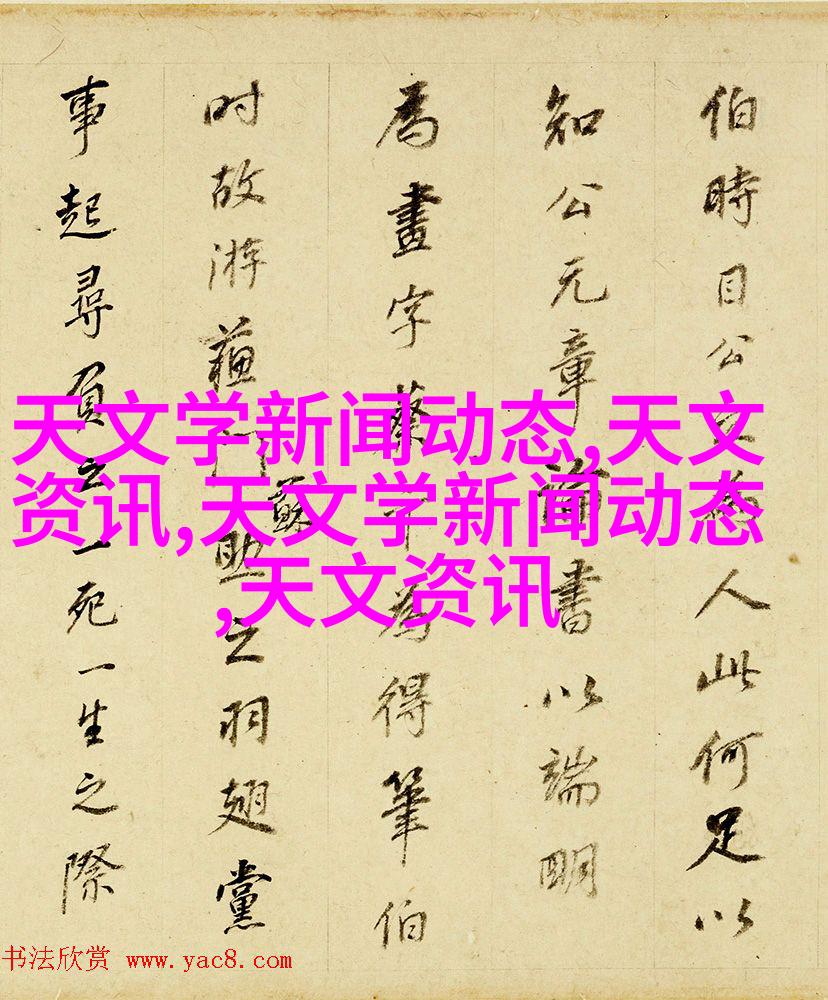 伯時目公人此何足以
知公元章書以端明
為畫字蔡為得筆伯
时故游蘓門助之羽翅黨
蘇
事起尋負之一死一生之際
天文学新闻动态,天文
资讯,天文学新闻动态
,天文资讯
书法欣赏 www.yac8.com